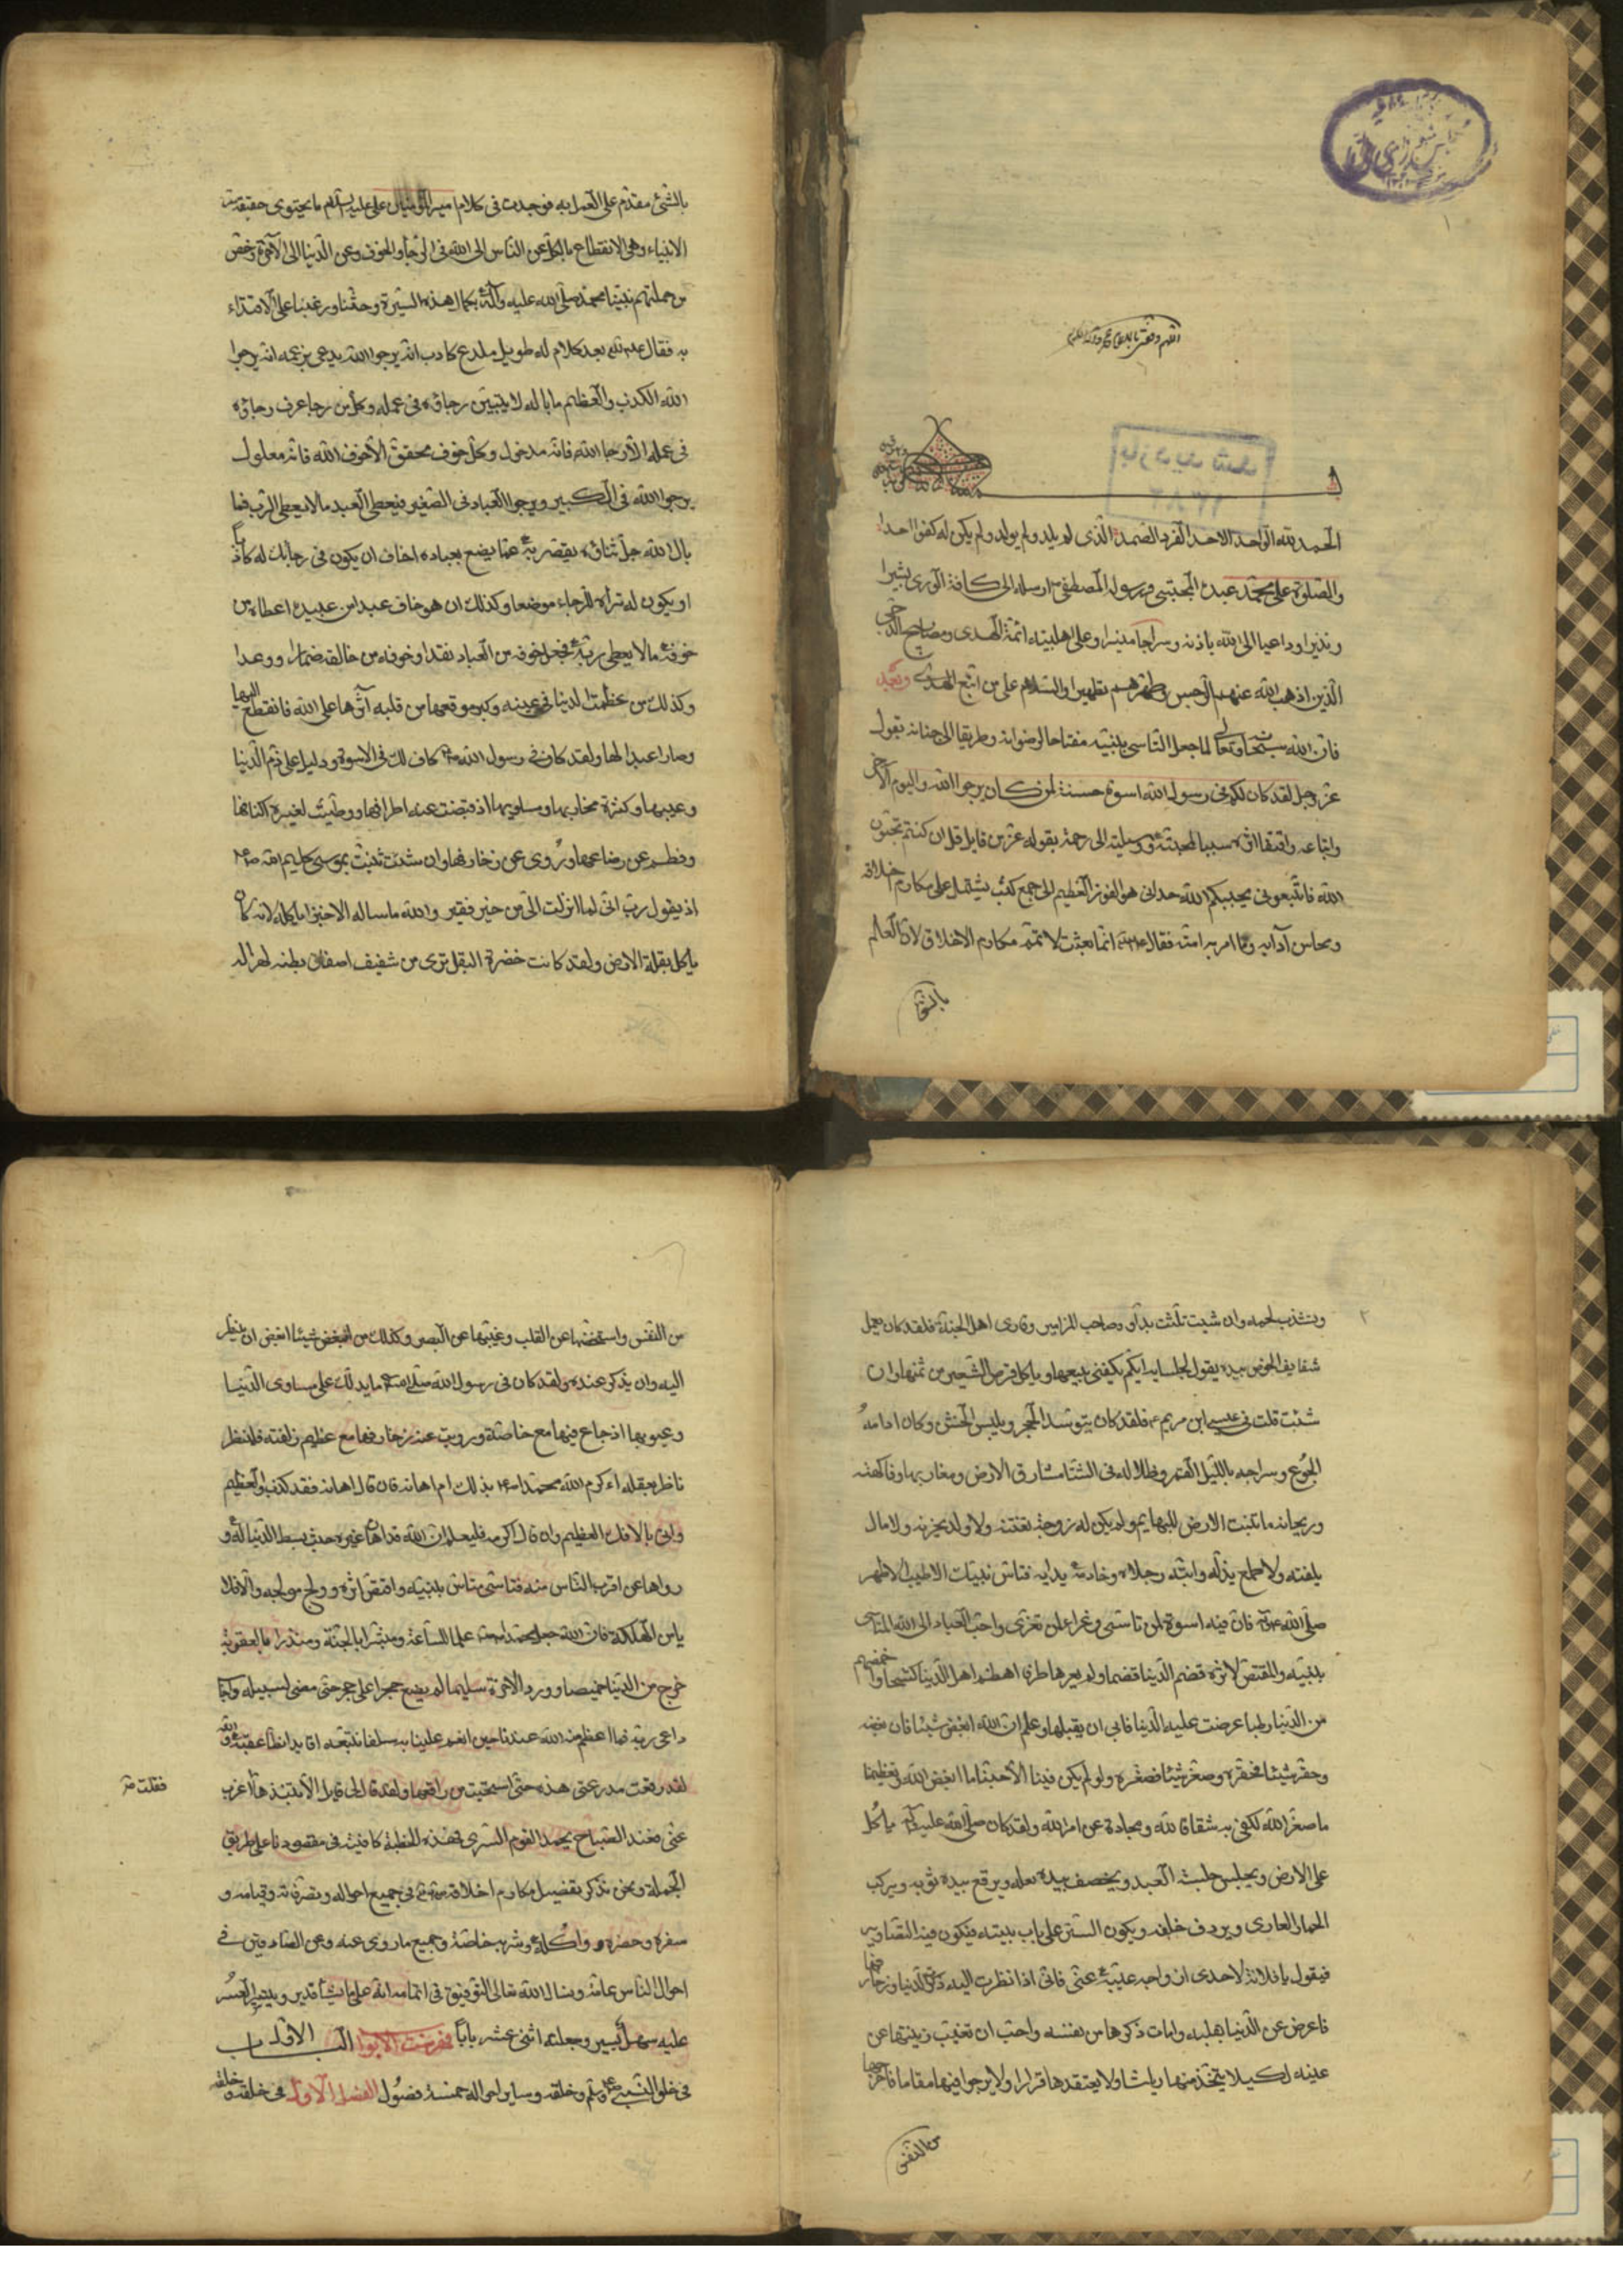 الحمد لله الواحد الاحد الفرد الصمد الذى لم يلد ولم يولد ولم يكن له كفوا احدا
والصلوة على محمد عبده المجتبى ورسوله المصطفى ارسله الى كافة الورى بشيرا
ونذيرا وداعيا الى الله باذنه وسراجا منيرا وعلى اهل بيته ائمة الهدى ومصابيح الدجى
الذين اذهب الله عنهم الرجس وطهرهم تطهيرا والسلام على من اتبع الهدى وبعد
فان الله سبحانه وتعالى لما جعل التاسى بنبيه مفتاحا لرضوانه وطريقا الى جنانه بقوله
عز وجل لقد كان لكم فى رسول الله اسوة حسنة لمن كان يرجوا الله واليوم الآخر
واتباعه واقتفا اثره سببا لمحبته ووسيلته الى رحمة بقوله عز من قايل قل ان كنتم تحبون
الله فاتبعونى يحببكم الله حدانى هو الفوز العظيم الى جمع كتب يشتمل على مكارم اخلاقه
ومحاسن آدابه وما امر به امته فقال انما بعثت لاتمم مكارم الاخلاق لان العلم
بالشئ
بالشئ مقدم على العمل به فوجدت فى كلام امير المؤمنين على عليه السلام ما يحتوى حقيقة
الانبياء وهى الانقطاع بالكل عن الناس الى الله فى الرجأ والخوف وعن الدنيا الى الآخرة وخص
من جملتهم نبينا محمد صلى الله عليه وآله بكمال هذه السيرة وحثنا ورغبنا على الاقتداء
به فقال بعد كلام له طويل لمدع كاذب انه يرجوا الله يدعى بزعمه انه يرجوا
الله الكذب والعظيم ما باله لا يتبين رجاؤه فى عمله وكل من رجا عرف رجاؤه
فى عمله الا رجا الله فانه مدخول وكل خوف محقق الا خوف الله فانه معلول
يرجوا الله فى الكبير ويرجوا العباد فى الصغير فيعطى العبد ما لا يعطى الرب فما
بال الله جل ثناؤه يقصر به عما يضع بعباده اخاف ان يكون فى رجايك له كاذبا
او يكون لا تراه للرجاء موضعا وكذلك ان هو خاف عبدا من عبيده اعطاه من
خوفه ما لا يعطى ربه فجعل خوفه من العباد نقدا وخوفه من خالقه ضمارا ووعدا
وكذلك من عظمت الدنيا فى عينه وكبر موقعها من قلبه آثرها على الله فانقطع اليها
وصار عبدا لها ولقد كان فى رسول الله كاف لك فى الاسوة ودليل على ذم الدنيا
وعيبها وكثرة مخازيها ومساويها اذ قبضت عنه اطرافها ووطيت لغيره اكنافها
وفطم عن رضاعها وزوى عن زخارفها وان شئت ثنيت بموسى كليم الله
اذ يقول رب انى لما انزلت الى من خير فقير والله ما ساله الا خبزا ياكله لانه كان
ياكل بقلة الارض ولقد كانت خضرة البقل ترى من شفيف صفاق بطنه لهزاله
٢
وتشذب لحمه وان شيت ثلثت بداود صاحب المزامير وقارى اهل الجنة فلقد كان يعمل
سفايف الخوص بيده يقول لجلسايه ايكم يكفينى بيعها وياكل قرص الشعير من ثمنها وان
شئت قلت فى عيسى ابن مريم فلقد كان يتوسد الحجر ويلبس الخشن وكان ادامه
الجوع وسراجه بالليل القمر وظلاله فى الشتا مشارق الارض ومغاربها وفاكهته
وريحانه ما تنبت الارض للبهايم ولم يكن له زوجة تفتنه ولا ولد يحزنه ولا مال
يلفته ولا طمع يذله دابته رجلاه وخادمه يداه فتاس بنبيك الاطيب الاطهر
صلى الله عليه وآله فان فيه اسوة لمن تاسى وعزاء لمن تعزى واحب العباد الى الله المتاسى
بنبيه والمقتص لاثره قضم الدنيا قضما ولم يعرها طرفا اهضم اهل الدنيا كشحا واخمصهم
من الدنيا بطنا عرضت عليه الدنيا فابى ان يقبلها وعلم ان الله ابغض شيئا فابغضه
وحقر شيئا فحقره وصغر شيئا فصغره ولو لم يكن فينا الا حبنا ما ابغض الله وتعظيمنا
ما صغر الله لكفى به شقاقا لله ومحادة عن امر الله ولقد كان صلى الله عليه وآله ياكل
على الارض ويجلس جلسة العبد ويخصف بيده نعله ويرقع بيده ثوبه ويركب
الحمار العارى ويردف خلفه ويكون الستر على باب بيته فيكون فيه التصاوير
فيقول يا فلانة لاحدى ازواجه غيبيه عنى فانى اذا نظرت اليه ذكرت الدنيا وزخارفها
فاعرض عن الدنيا بقلبه وامات ذكرها من نفسه واحب ان تغيب زينتها عن
عينه لكيلا يتخذ منها رياشا ولا يعتقدها قرارا ولا يرجوا فيها مقاما فاخرجها
من النفس
من النفس واشخصها عن القلب وغيبها عن البصر وكذلك من ابغض شيئا ابغض ان ينظر
اليه وان يذكر عنده ولقد كان فى رسول الله ما يدلك على مساوى الدنيا
وعيوبها اذ جاع فيها مع خاصته وزويت عنه زخارفها مع عظيم زلفته فلينظر
ناظر بعقله اءكرم الله محمدا بذلك ام اهانه فان قال اهانه فقد كذب والعظيم
واتى بالافك العظيم وان قال اكرمه فليعلم ان الله قد اهان غيره حيث بسط الدنيا له و
زواها عن اقرب الناس منه فتاسى متاس بنبيه واقتص اثره وولج مولجه والا فلا
يامن الهلكة فان الله جعل محمدا علما للساعة ومبشرا بالجنة ومنذرا بالعقوبة
خرج من الدنيا خميصا وورد الآخرة سليما لم يضع حجرا على حجر حتى مضى لسبيله واجاب
داعى ربه فما اعظم منة الله عندنا حين انعم علينا به سلفا نتبعه وقايدا نطأ عقبه والله
لقد رقعت مدرعتى هذه حتى استحييت من راقعها ولقد قال لى قايل الا تنبذها اعزب
فقلت
عنى فعند الصباح يحمد القوم السرى فهذه الخطبة كافية فى مقصودنا على طريق
الجملة ونحن نذكر تفصيل مكارم اخلاقه فى جميع احواله وتصرفاته وقيامه و
سفره وحضره واكله وشربه خاصة وجميع ما روى عنه وعن الصادقين فى
احوال الناس عامة ونسال الله تعالى التوفيق فى اتمامه انه على ما يشأ قدير وتيسير العسير
عليه سهل يسير وجعلته اثنى عشر بابا فهرست الابواب الباب الاول
فى خلق النبى وخلقه وساير احواله خمسة فصول الفصل الاول فى خلقه وخلقه